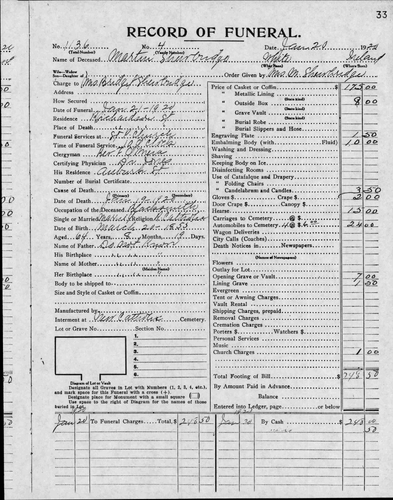 33
RECORD OF FUNERAL.
No. 136 No. 4 Date Jan 20 192
(Total Number) (Yearly Number)
Name of Deceased Martin White Ireland
(What Race) (Where Born)
Wife—Widow
Charge to Mrs Bridget Order Given by Mrs M.
Address
How Secured
Date of Funeral Jan 21-1920
Residence Richardson St
Place of Death
Funeral Services at St Church
Time of Funeral Service
Clergyman Rev
Certifying Physician Dr
His Residence Auburn St
Number of Burial Certificate
Cause of Death
Date of Death Jan 19 1920
Occupation of the Deceased
Single or Married Religion
Date of Birth March 20 1855
Aged 64 Years Months 19 Days
Name of Father
His Birthplace
Name of Mother
(Maiden Name)
Her Birthplace
Body to be shipped to
Size and Style of Casket or Coffin
Manufactured by
Interment at New Catholic Cemetery
Lot or Grave No. Section No.
1.
2.
3.
4.
5.
6.
Diagram of Lot or Vault
Designate all Graves in Lot with Numbers (1, 2, 3, 4, etc.), and mark space for this Funeral with a cross (+)
Designate place for Monument with a small square
Use space to the right of Diagram for the names of those buried in Lot
Jan 20 To Funeral Charges Total, $ 248 50
Price of Casket or Coffin $ 175 00
(State kind)
Metallic Lining
Outside Box 9 00
(State kind)
Grave Vault
(State kind)
Burial Robe
(State kind)
Burial Slippers and Hose
Engraving Plate 1 50
Embalming Body (with Fluid) 10 00
Washing and Dressing
Shaving
Keeping Body on Ice
Disinfecting Rooms
Use of Catafalque and Drapery
" Folding Chairs
" Candelabrum and Candles 3 50
Gloves $ Crape $ 2 00
Door Crape $ Canopy $
Hearse 15 00
Carriages to Cemetery @ $
Automobiles to Cemetery 4 @ $6.00 24 00
Wagon Deliveries
City Calls (Coaches)
Death Notices in Newspapers
(Names of Newspapers)
Flowers
Outlay for Lot
Opening Grave or Vault 7 00
Lining Grave 1 00
Evergreen
Tent or Awning Charges
Vault Rental
Shipping Charges, prepaid
Removal Charges
Cremation Charges
Porters $ Watchers $
Personal Services
Music
Church Charges 1 00
Total Footing of Bill $ 248 50
By Amount Paid in Advance
Balance
Entered into Ledger, page or below.
Jan 30 By Cash 248 00
50